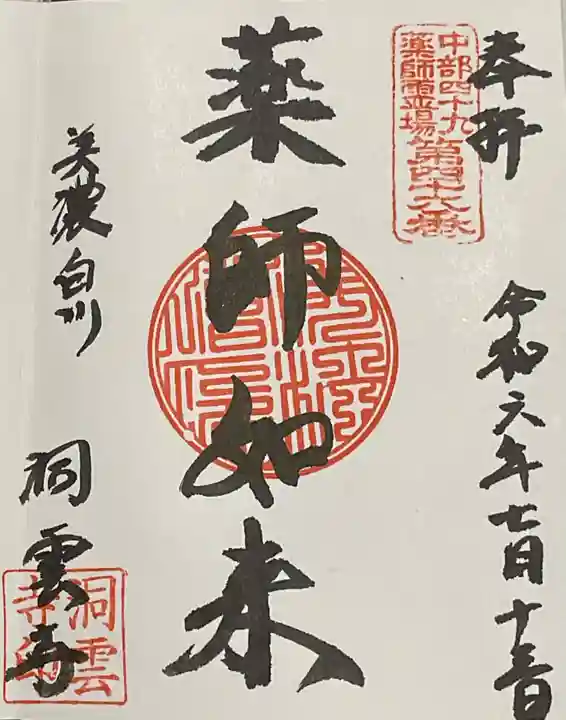 奉拝
令和六年七月十三日
中部四十九
薬師霊場
第四十六番
薬師如来
美濃白川
洞雲寺
洞雲
寺印